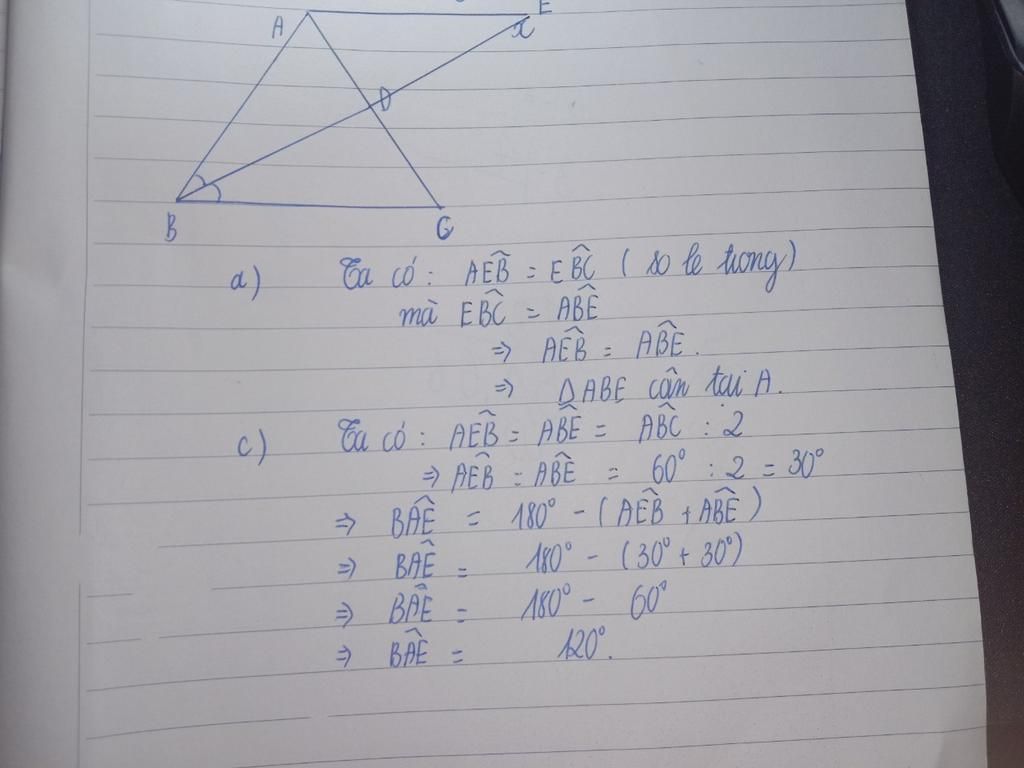 A
E
x
D
B
C
a) Ta có: AÊB = EB̂C (so le trong)
mà EB̂C = AB̂E
⇒ AÊB = AB̂E.
⇒ ΔABE cân tại A.
c) Ta có: AÊB = AB̂E = AB̂C : 2
⇒ AÊB = AB̂E = 60° : 2 = 30°
⇒ BÂE = 180° - (AÊB + AB̂E)
⇒ BÂE = 180° - (30° + 30°)
⇒ BÂE = 180° - 60°
⇒ BÂE = 120°.